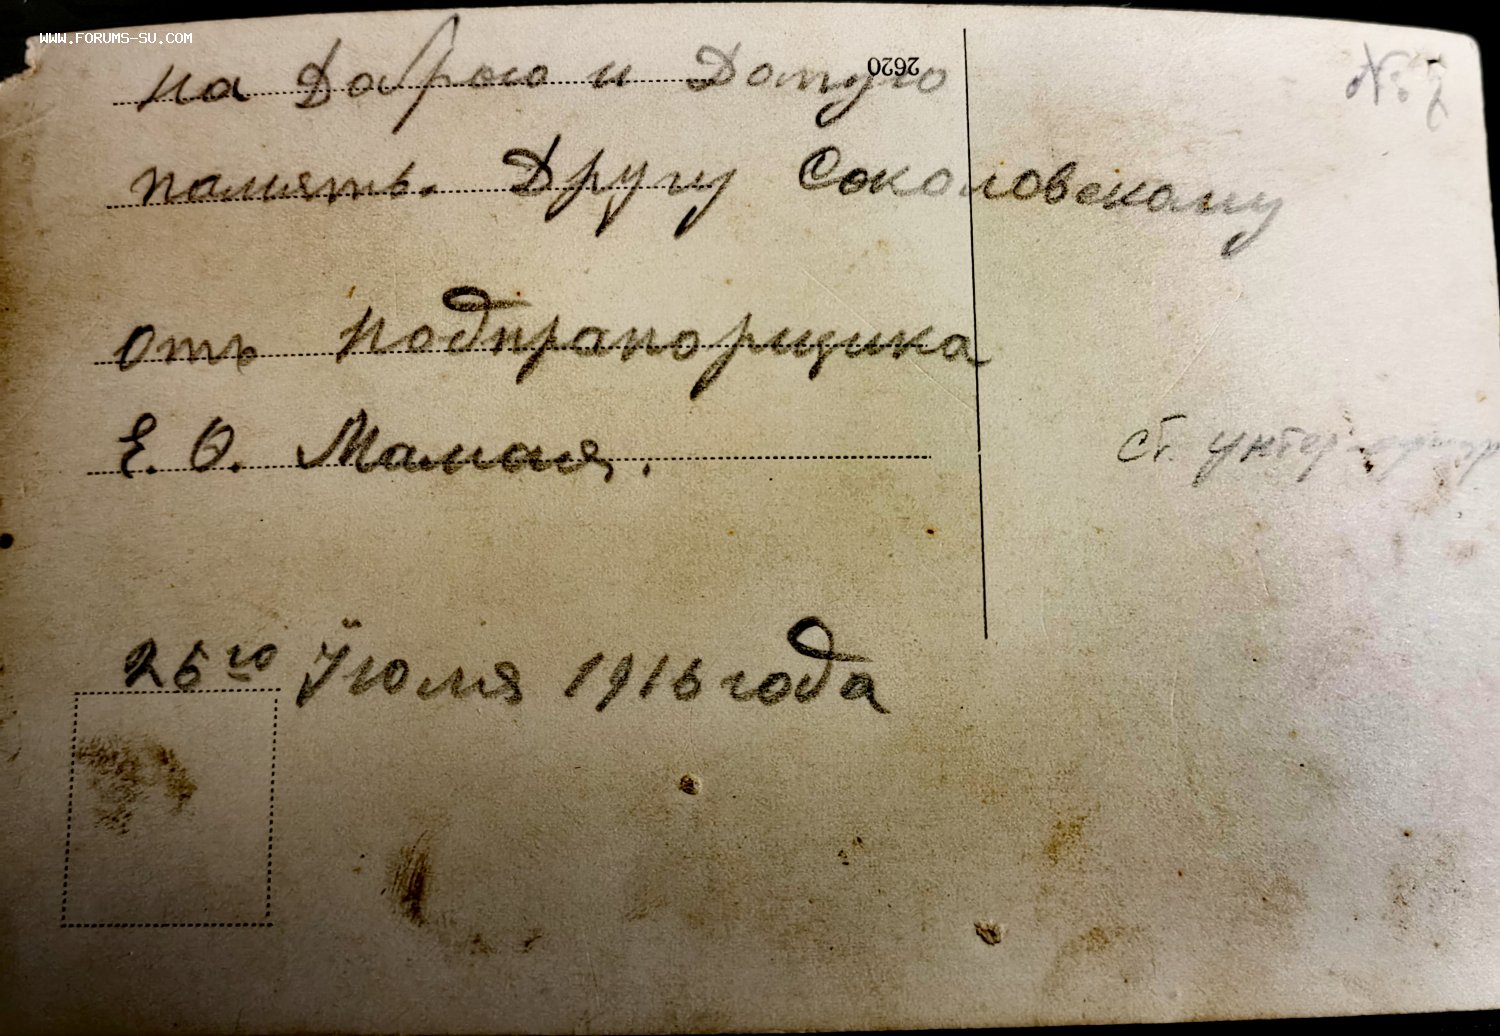 WWW.FORUMS-SU.COM
2620
на Доброю и Долгую
память. Другу Соколовскому
отъ подпрапорщика
Е. Ѳ. Мамая.
ст. унтер-офицер
26го Їюля 1916 года